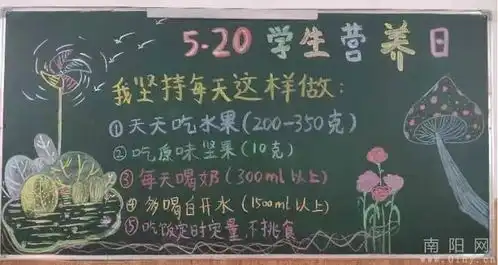 5·20 学生营养日
我坚持每天这样做：
①天天吃水果(200-350克)
②吃原味坚果(10克)
③每天喝奶(300ml以上)
④多喝白开水(1500ml以上)
⑤吃饭定时定量,不挑食
南阳网
www.01ny.cn